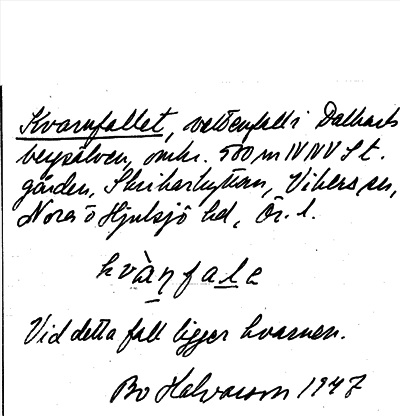 Kvarnfallet, vattenfall i Dalkarls
bergsälven, omkr. 500 m NNV St.
gården, Skrikarhyttan, Vikers sn,
Nora o Hjulsjö hd, Ör. l.
kvà̱ŋfale
Vid detta fall ligger kvarnen.
Bo Halvarson 1947